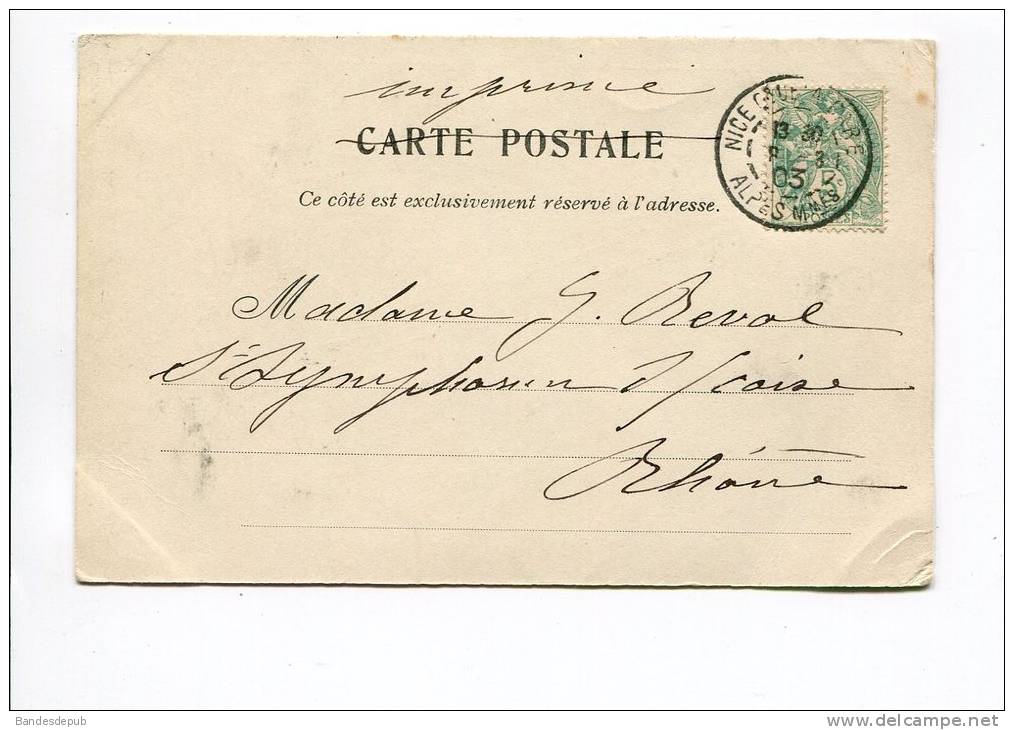 imprimé
CARTE POSTALE
Ce côté est exclusivement réservé à l'adresse.
NICE
13 30
03
ALPES MMES
Madame G. Reval
St Symphorien d'/Coise
Rhône
Bandesdepub
www.delcampe.net